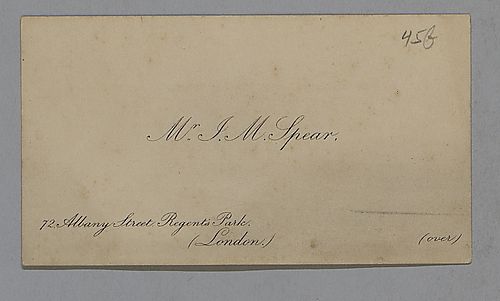 45b
Mr. J. M. Spear.
72 Albany Street. Regent's Park.
(London.)
(over)